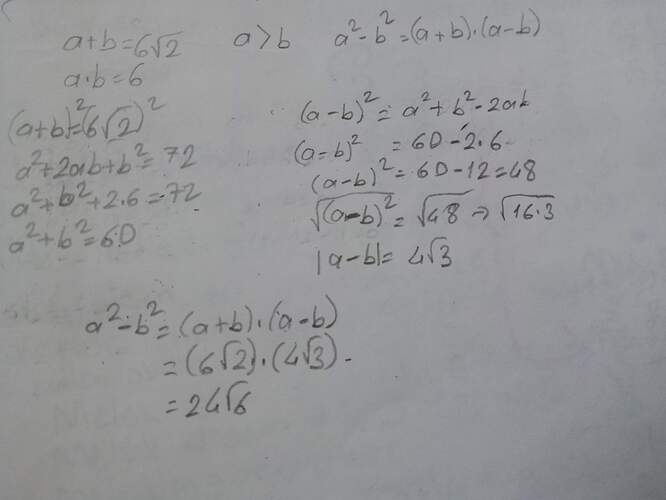 a+b=6√2 a>b a²-b²=(a+b)·(a-b)
a·b=6
(a+b)²=(6√2)²
a²+2ab+b²=72
a²+b²+2·6=72
a²+b²=60
(a-b)²=a²+b²-2ab
(a-b)²=60-2·6
(a-b)²=60-12=48
√(a-b)²=√48→√16·3
|a-b|=4√3
a²-b²=(a+b)·(a-b)
=(6√2)·(4√3)
=24√6